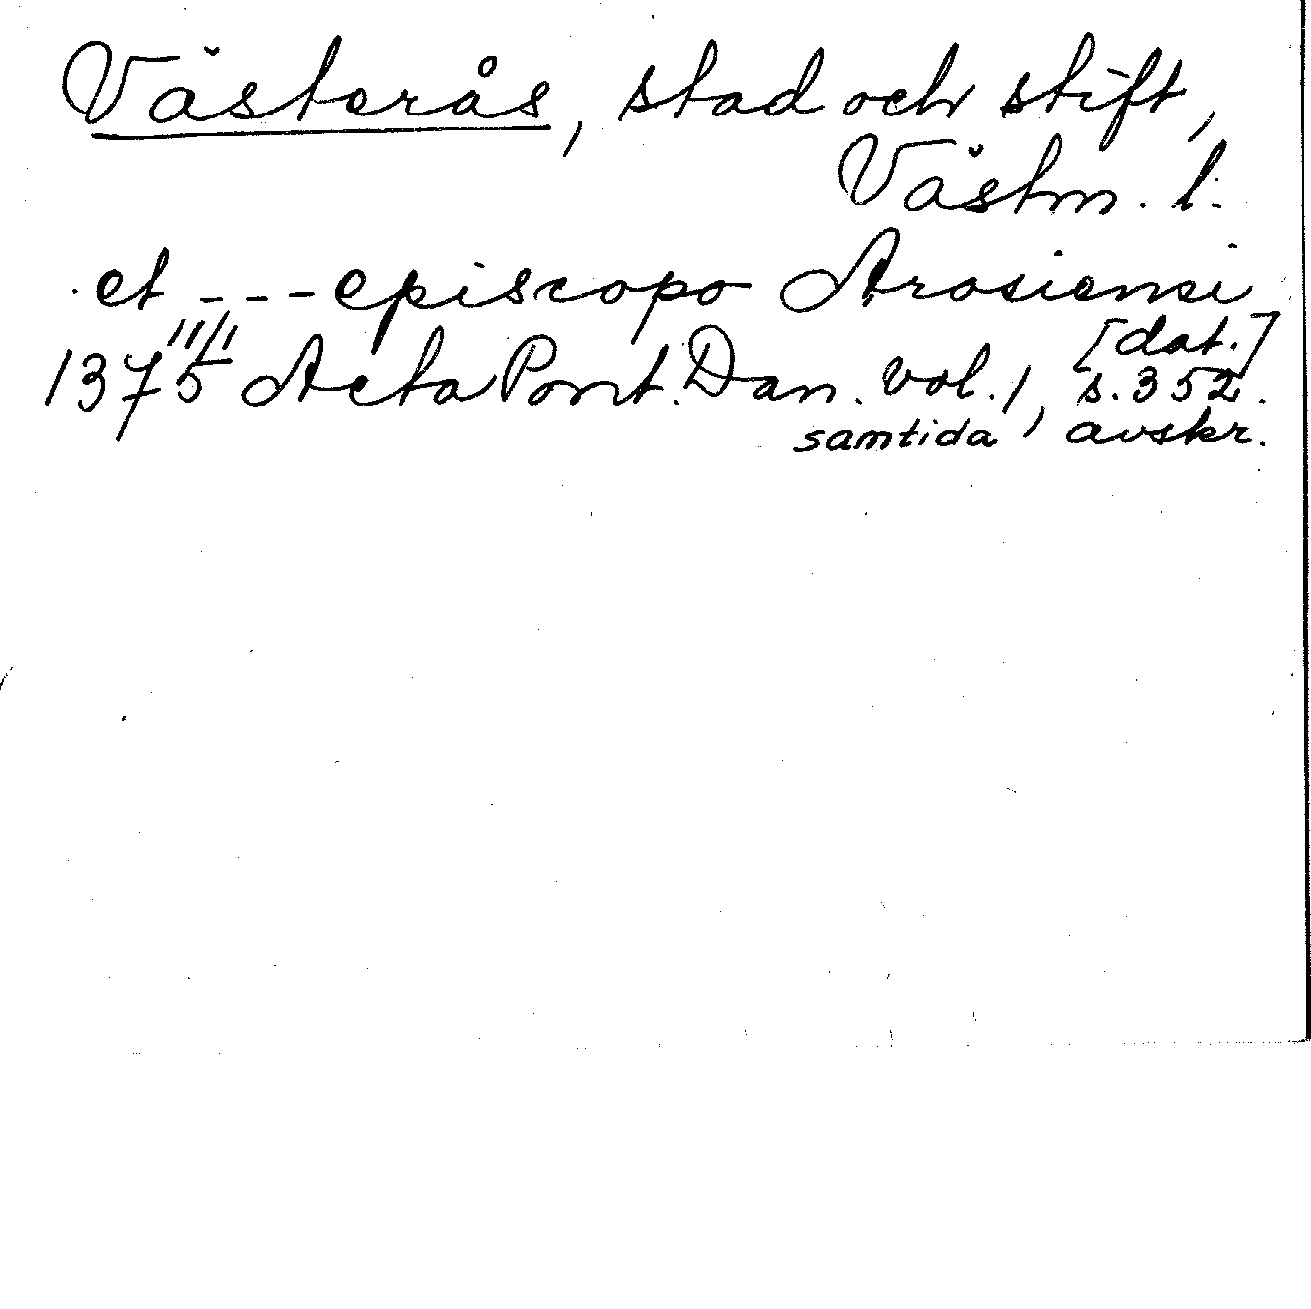 Västerås, stad och stift,
Västm. l.
et --- episcopo Arosiensi
[dat.]
1375 11/1 Acta Pont. Dan. vol. 1, s. 352.
samtida avskr.